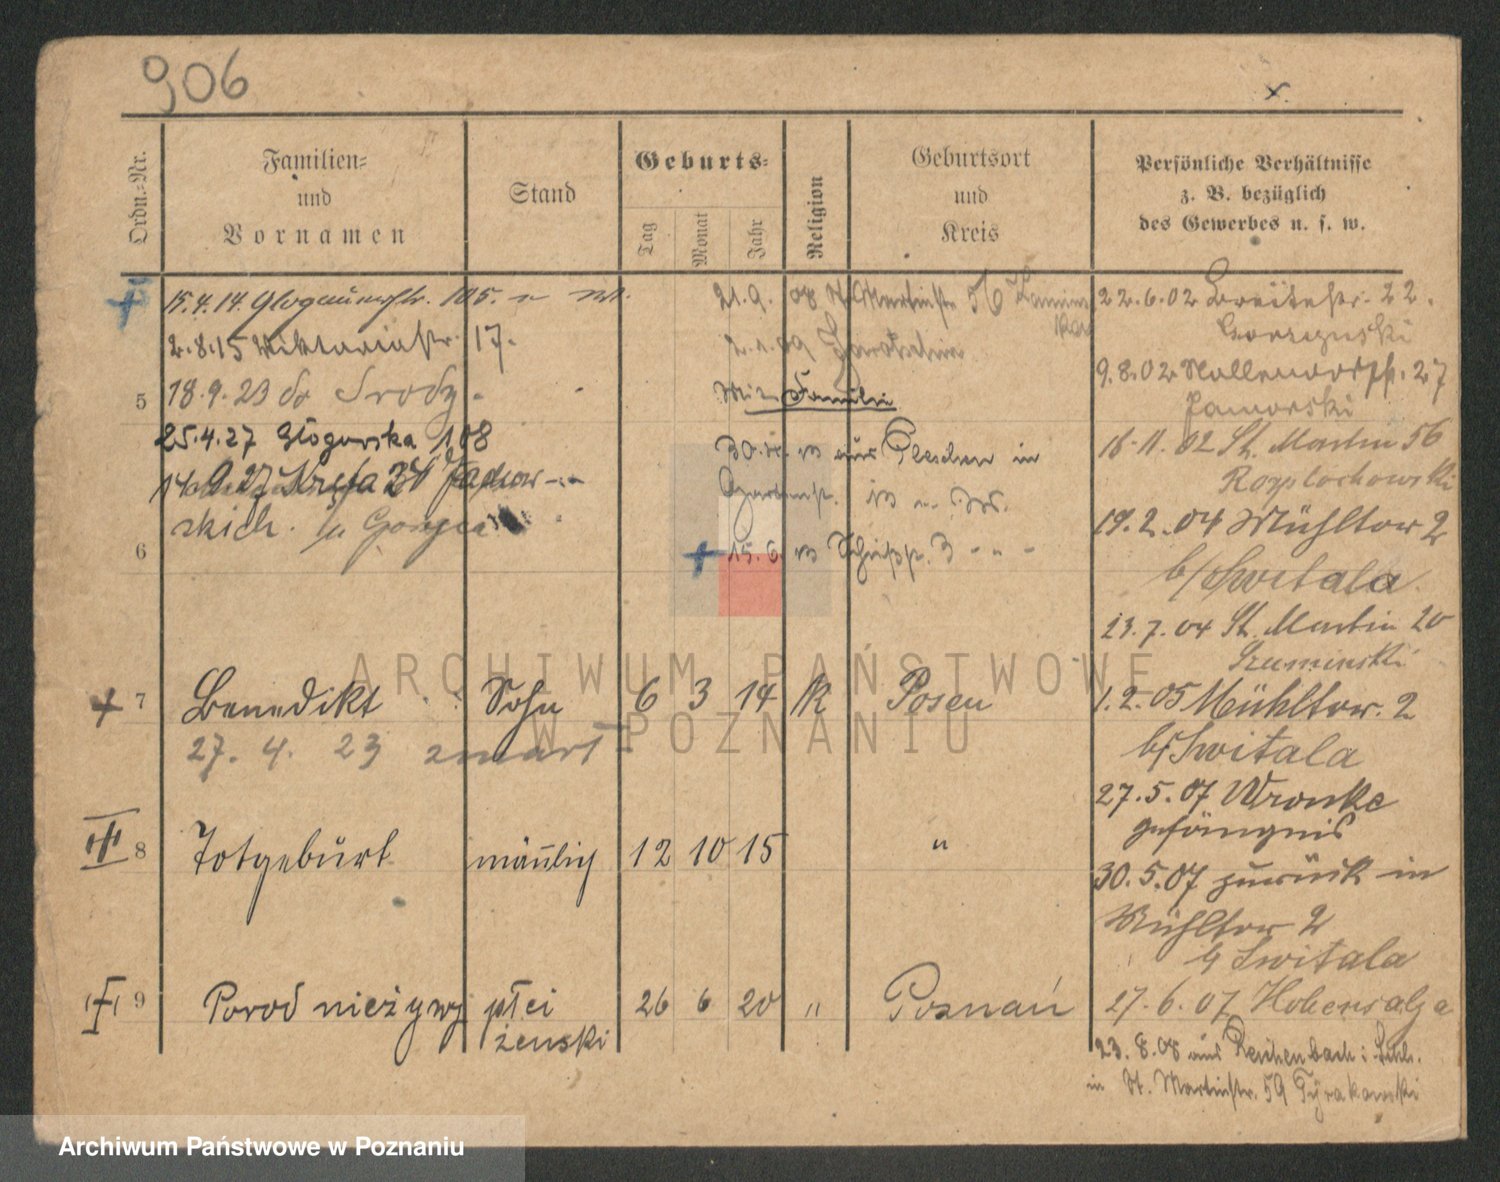 906
x.
Ordn.=Nr.
Familien=
und
Vornamen
Stand
Geburts=
Tag
Monat
Jahr
Religion
Geburtsort
und
Kreis
Persönliche Verhältnisse
z. B. bezüglich
des Gewerbes u. s. w.
15.4.14. Glogauerstr. 105.
2.8.15 Viktoriastr. 17.
18.9.23 do Srody
25.4.27 Głogowska 108
skich.
21.9. 08 St. Martinstr 56
2.1.09
Mit Familie
aus Pleschen in
15.6. 3
22.6.02 Breitestr. 22.
Gorzynski
9.8.02 Hallendorfstr. 27
Jaworski
18.11.02 St. Martin 56
Rozplochowski
19.2.04 Mühltor 2
b/Switala
23.7.04 St. Martin 20
Szuminski
1.2.05 Mühltor. 2
b/Switala
27.5.07 Wronke
gefängnis
30.5.07 zurück in
Mühltor 2
b/ Switala
27.6.07 Hohensalza
23.8.08 aus Reichenbach i. Schl.
in St. Martinstr. 59 Tyrakowski
5
6
+ 7 Benedikt Sohn 6 3 14 k Posen
27. 4. 23 zmarł
III 8 Totgeburt männlich 12 10 15 "
I 9 Poród nieżywy płci 26 6 20 " Poznań
żenski
ARCHIWUM PAŃSTWOWE
W POZNANIU
Archiwum Państwowe w Poznaniu